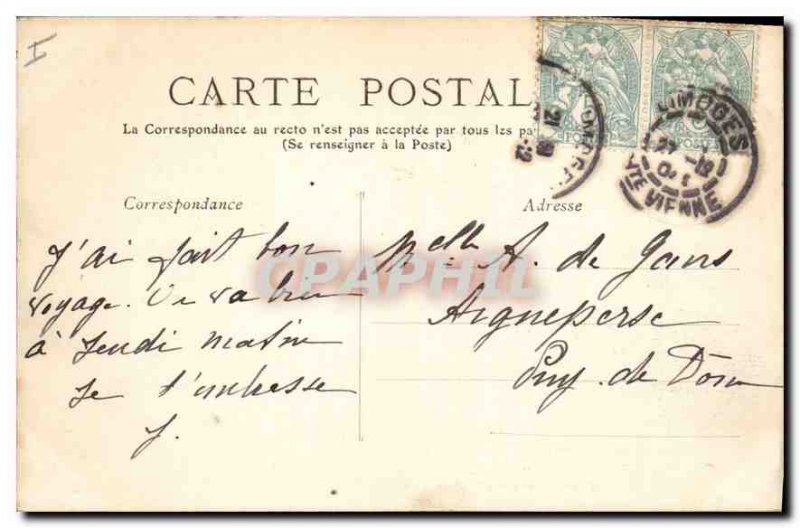 I
CARTE POSTAL
La Correspondance au recto n'est pas acceptée par tous les pa
(Se renseigner à la Poste)
LIMOGES
Hte VIENNE
Correspondance
Adresse
J'ai fait bon
voyage. va bien
à Jeudi matin
Je t'embrasse
J.
Melle A. de Gans
Aigueperse
Puy. de Dôme
CPAPHIL